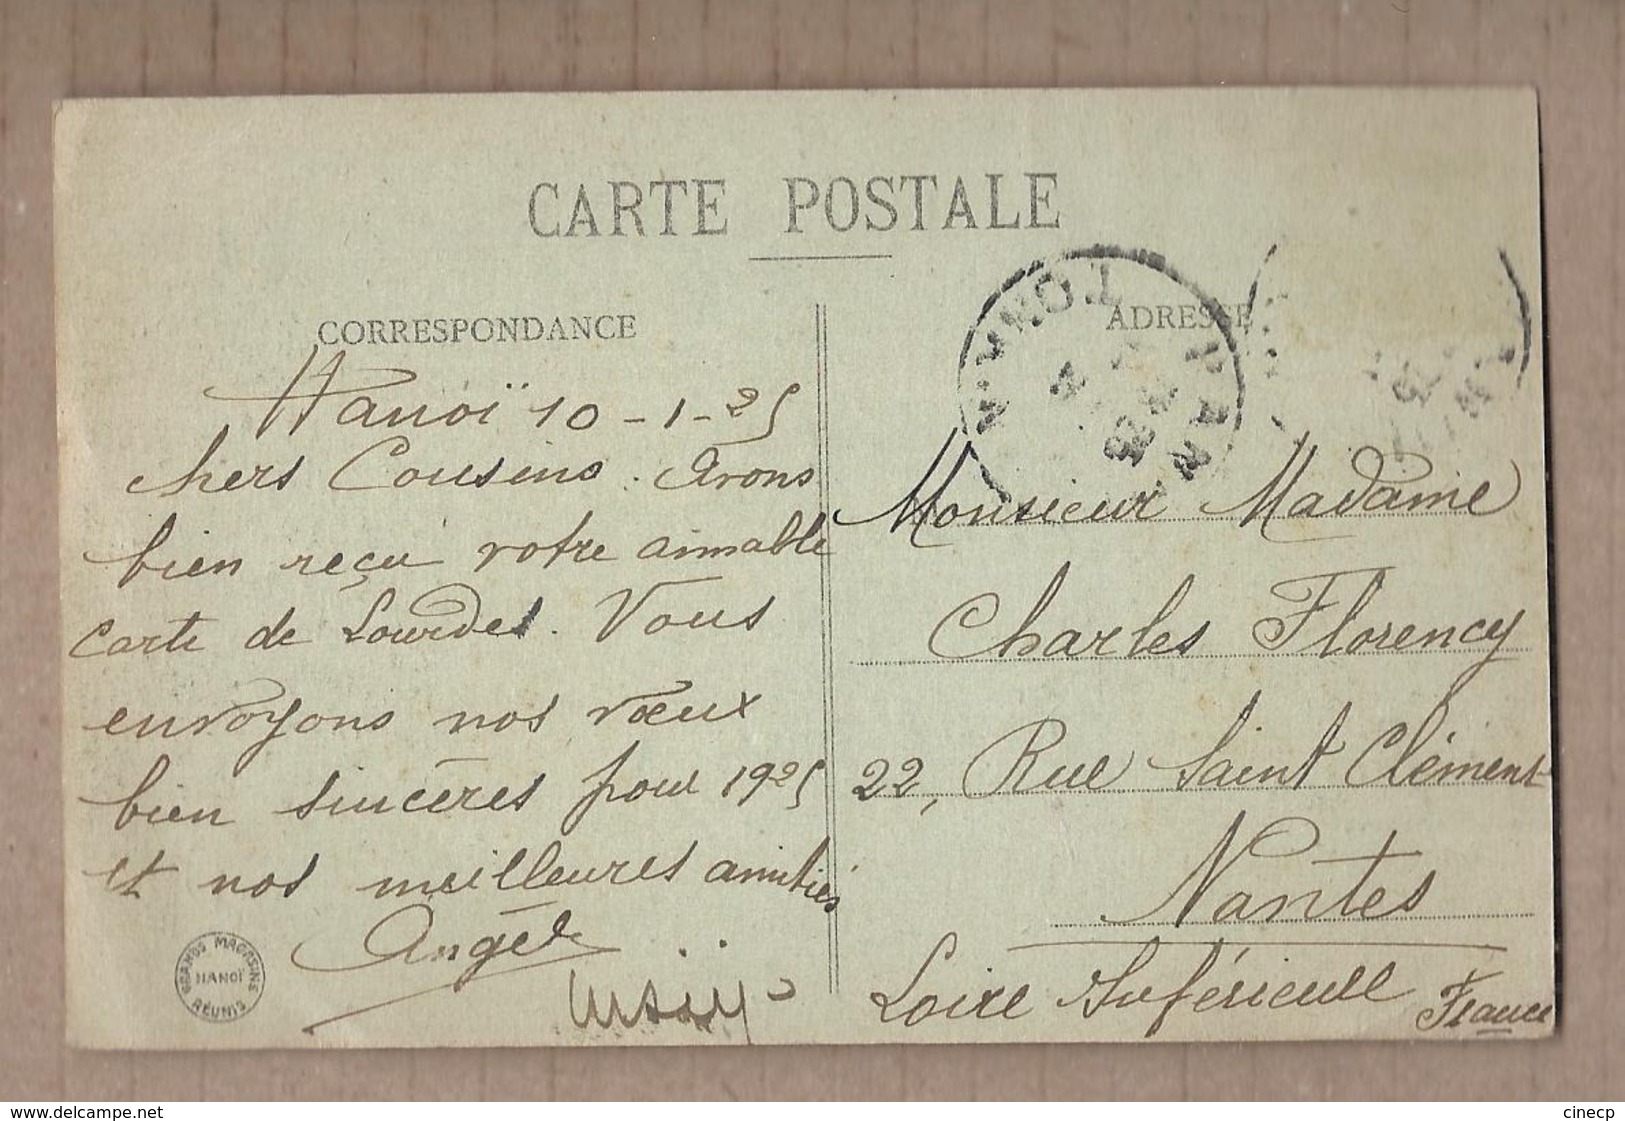 CARTE POSTALE
CORRESPONDANCE
Hanoï 10-1-25
chers Cousins. Avons
bien reçu votre aimable
carte de Lourdes. Vous
envoyons nos vœux
bien sincères pour 1925
et nos meilleures amitiés
Angèle
GRANDS MAGASINS
HANOÏ
RÉUNIS
ADRESSE
Monsieur Madame
Charles Florency
22, Rue Saint Clément
Nantes
Loire Inférieure France
www.delcampe.net
cinecp